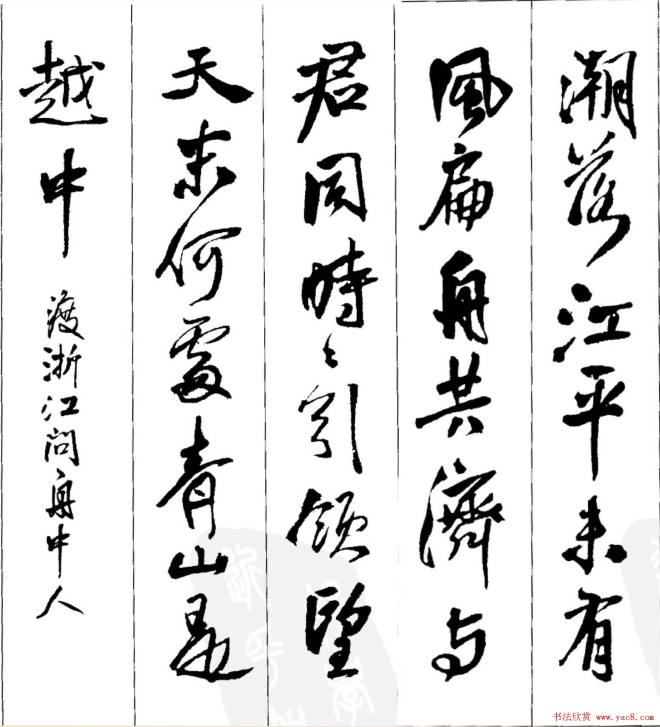 潮落江平未有
風扁舟共濟与
君同時〻引領望
天末何處青山是
越中
渡浙江問舟中人
书法欣赏 www.yac8.com